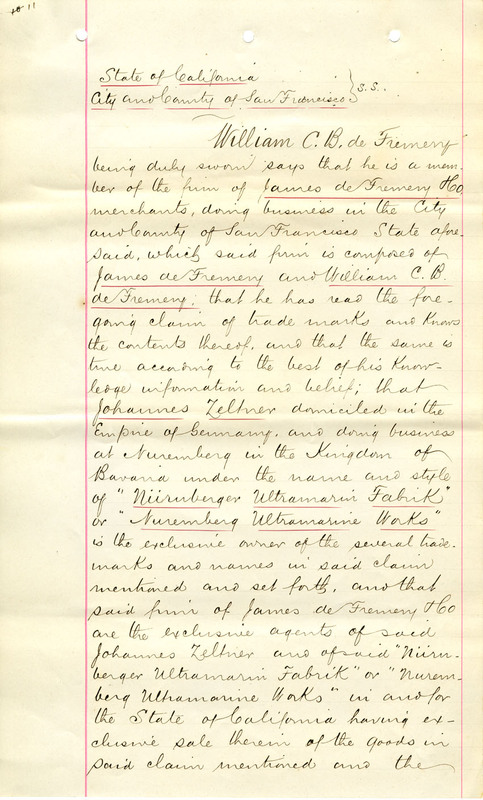 State of California
City and County of San Francisco } S.S.
William C. B. de Fremery
being duly sworn says that he is a mem-
ber of the firm of James de Fremery & Co
merchants, doing business in the City
and County of San Francisco State afore-
said, which said firm is composed of
James de Fremery and William C. B.
de Fremery; that he has read the fore-
going claim of trade marks and knows
the contents thereof, and that the same is
true according to the best of his know-
ledge information and belief; that
Johannes Zeltner domiciled in the
Empire of Germany, and doing business
at Nuremberg in the Kingdom of
Bavaria under the name and style
of "Nüirnberger Ultramarin Fabrik"
or "Nuremberg Ultramarine Works"
is the exclusive owner of the several trade-
marks and names in said claim
mentioned and set forth, and that
said firm of James de Fremery & Co
are the exclusive agents of said
Johannes Zeltner and of said "Nüirn-
berger Ultramarin Fabrik" or "Nurem-
berg Ultramarine Works" in and for
the State of California having ex-
clusive sale therein of the goods in
said claim mentioned and the